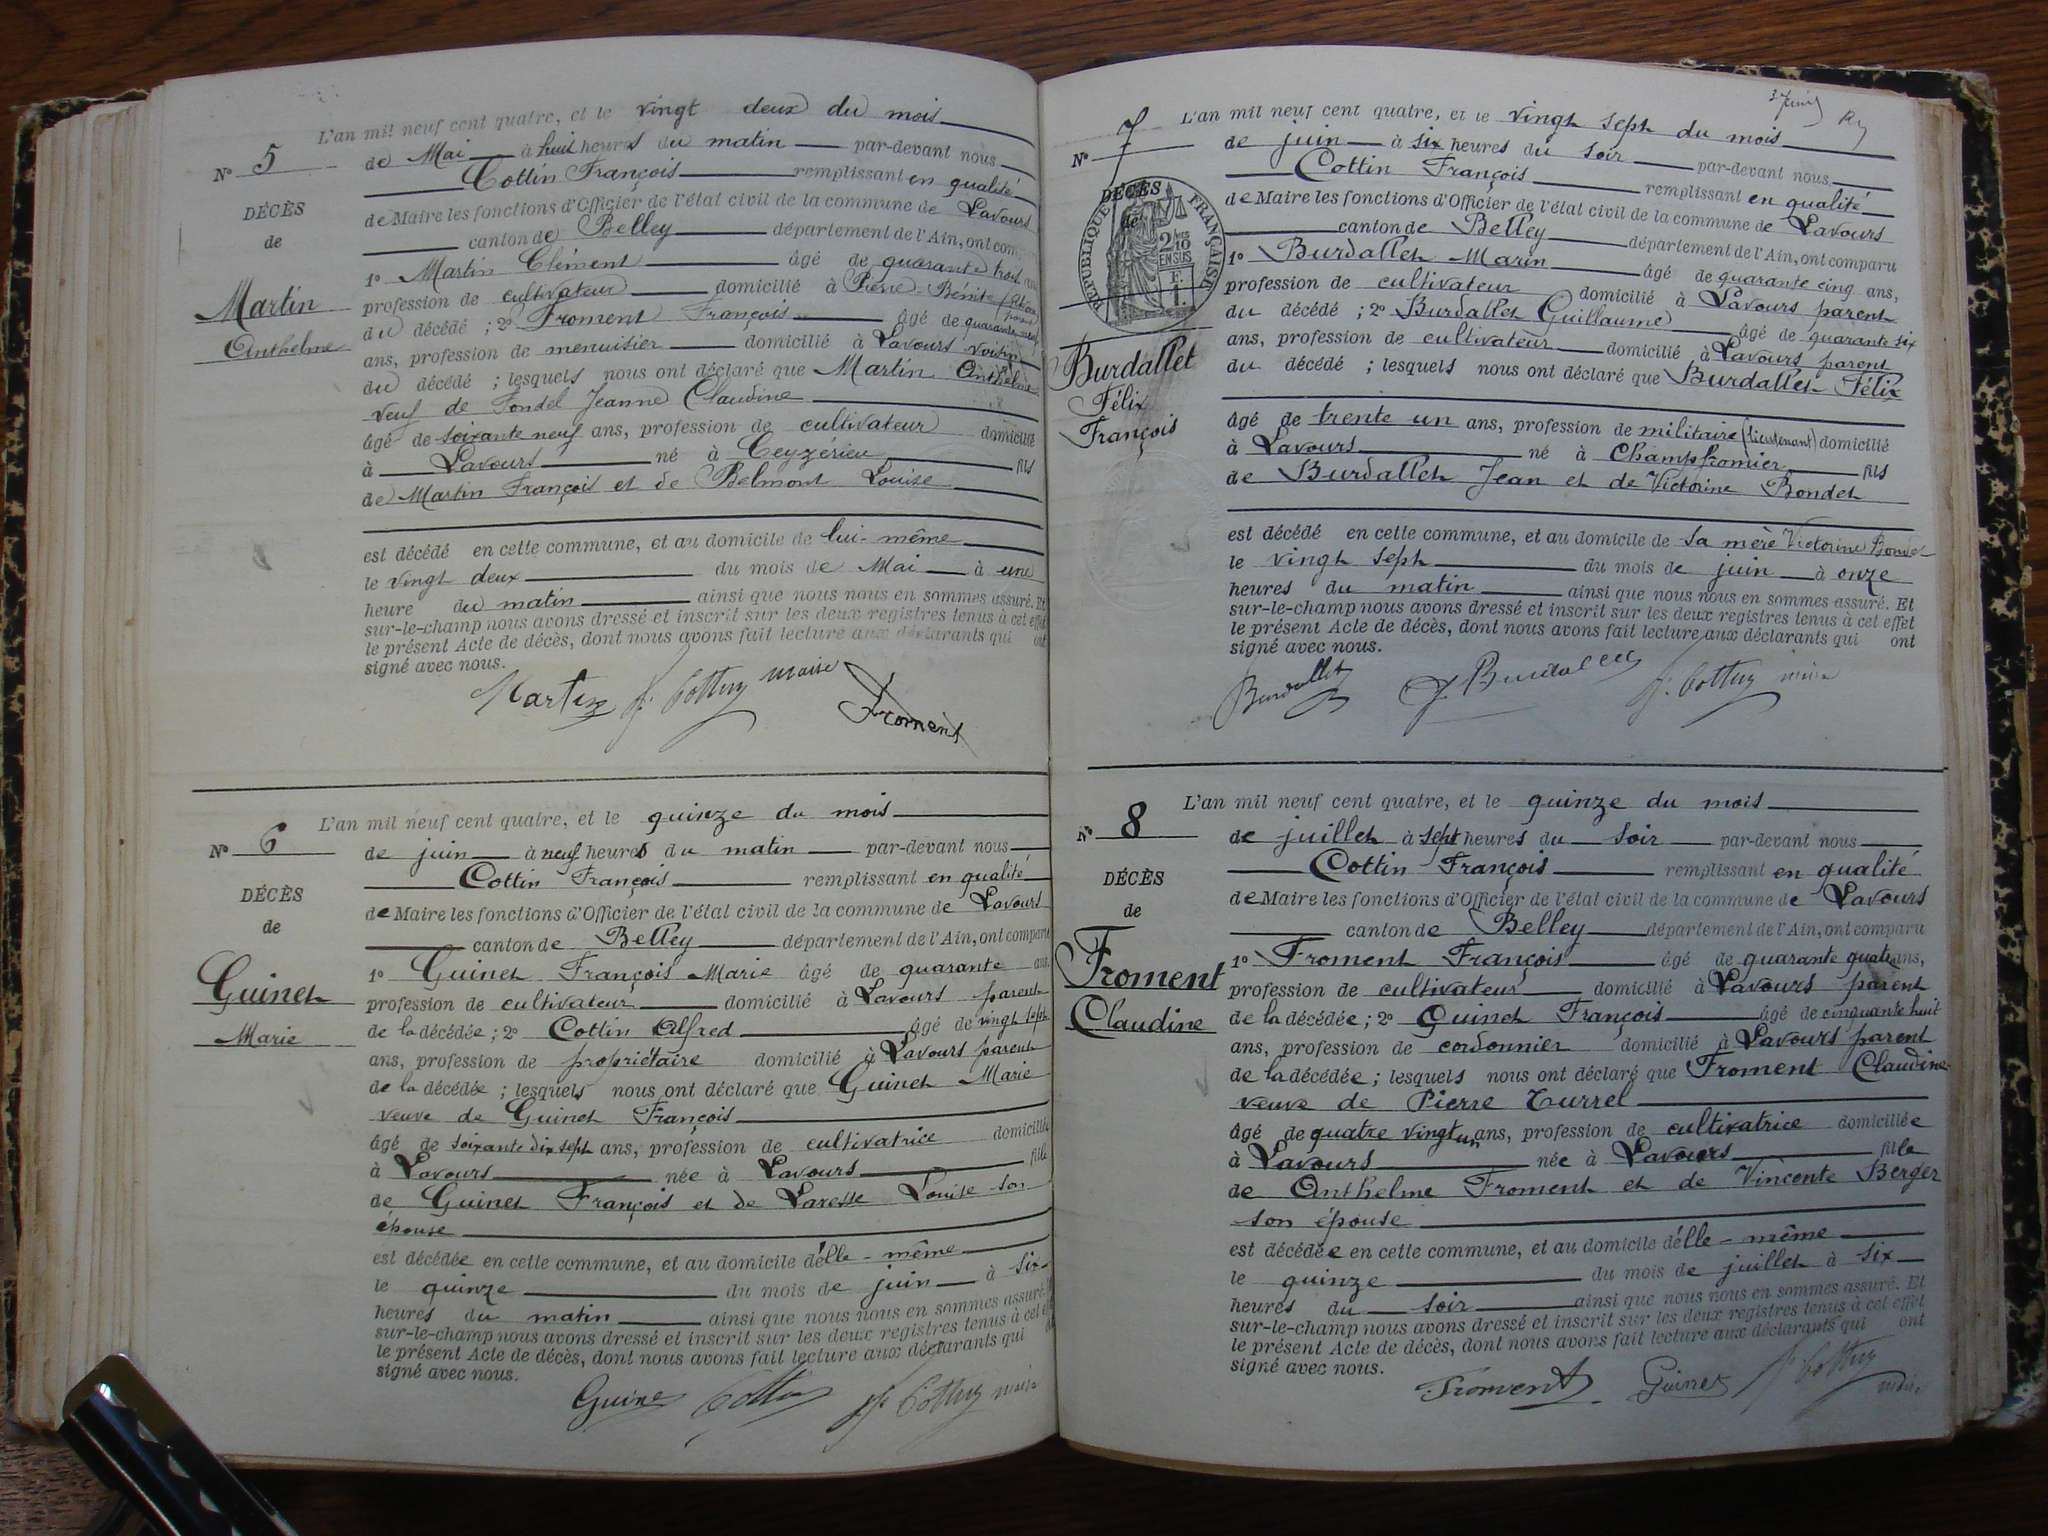 N° 5
DÉCÈS
de
Martin
Anthelme
L'an mil neuf cent quatre, et le vingt deux du mois
de Mai à huit heures du matin par-devant nous
Cottin François remplissant en qualité
de Maire les fonctions d'Officier de l'état civil de la commune de Lavours
canton de Belley département de l'Ain, ont com
1° Martin Clément âgé de quarante trois
profession de cultivateur domicilié à Pierre-Bénite
du décédé ; 2° Froment François âgé de quarante
ans, profession de menuisier domicilié à Lavours voisin
du décédé ; lesquels nous ont déclaré que Martin Anthelme
veuf de Fondel Jeanne Claudine
âgé de soixante neuf ans, profession de cultivateur domicilié
à Lavours né à Ceyzérieu fils
de Martin François et de Belmont Louise
est décédé en cette commune, et au domicile de lui-même
le vingt deux du mois de Mai à une
heure du matin ainsi que nous nous en sommes assuré. Et
sur-le-champ nous avons dressé et inscrit sur les deux registres tenus à cet effet
le présent Acte de décès, dont nous avons fait lecture aux déclarants qui ont
signé avec nous.
Martin F. Cottin maire Froment
N° 6
DÉCÈS
de
Guinet
Marie
L'an mil neuf cent quatre, et le quinze du mois
de juin à neuf heures du matin par-devant nous
Cottin François remplissant en qualité
de Maire les fonctions d'Officier de l'état civil de la commune de Lavours
canton de Belley département de l'Ain, ont comparu
1° Guinet François Marie âgé de quarante ans
profession de cultivateur domicilié à Lavours parent
de la décédée ; 2° Cottin Alfred âgé de vingt sept
ans, profession de propriétaire domicilié à Lavours parent
de la décédée ; lesquels nous ont déclaré que Guinet Marie
veuve de Guinet François
âgé de soixante dix sept ans, profession de cultivatrice domiciliée
à Lavours née à Lavours fille
de Guinet François et de Laresse Louise son
épouse
est décédée en cette commune, et au domicile d'elle-même
le quinze du mois de juin à six
heures du matin ainsi que nous nous en sommes assuré.
sur-le-champ nous avons dressé et inscrit sur les deux registres tenus à cet
le présent Acte de décès, dont nous avons fait lecture aux déclarants qui
signé avec nous.
Guinet Cottin F. Cottin maire
N° 7
DÉCÈS
de
RÉPUBLIQUE FRANÇAISE
2/10 EN SUS
Burdallet
Félix
François
L'an mil neuf cent quatre, et le vingt sept du mois
de juin à six heures du soir par-devant nous
Cottin François remplissant en qualité
de Maire les fonctions d'Officier de l'état civil de la commune de Lavours
canton de Belley département de l'Ain, ont comparu
1° Burdallet Marin âgé de quarante cinq ans,
profession de cultivateur domicilié à Lavours parent
du décédé ; 2° Burdallet Guillaume âgé de quarante six
ans, profession de cultivateur domicilié à Lavours parent
du décédé ; lesquels nous ont déclaré que Burdallet Félix
âgé de trente un ans, profession de militaire (lieutenant) domicilié
à Lavours né à Champfromier fils
de Burdallet Jean et de Victorine Bondet
est décédé en cette commune, et au domicile de sa mère Victorine Bondet
le vingt sept du mois de juin à onze
heures du matin ainsi que nous nous en sommes assuré. Et
sur-le-champ nous avons dressé et inscrit sur les deux registres tenus à cet effet
le présent Acte de décès, dont nous avons fait lecture aux déclarants qui ont
signé avec nous.
Burdallet Burdallet F. Cottin maire
N° 8
DÉCÈS
de
Froment
Claudine
L'an mil neuf cent quatre, et le quinze du mois
de juillet à sept heures du soir par-devant nous
Cottin François remplissant en qualité
de Maire les fonctions d'Officier de l'état civil de la commune de Lavours
canton de Belley département de l'Ain, ont comparu
1° Froment François âgé de quarante quatre ans,
profession de cultivateur domicilié à Lavours parent
de la décédée ; 2° Guinet François âgé de cinquante huit
ans, profession de cordonnier domicilié à Lavours parent
de la décédée ; lesquels nous ont déclaré que Froment Claudine
veuve de Pierre Turrel
âgé de quatre vingt un ans, profession de cultivatrice domiciliée
à Lavours née à Lavours fille
de Anthelme Froment et de Vincente Berger
son épouse
est décédée en cette commune, et au domicile d'elle-même
le quinze du mois de juillet à six
heures du soir ainsi que nous nous en sommes assuré. Et
sur-le-champ nous avons dressé et inscrit sur les deux registres tenus à cet effet
le présent Acte de décès, dont nous avons fait lecture aux déclarants qui ont
signé avec nous.
Froment Guinet F. Cottin maire